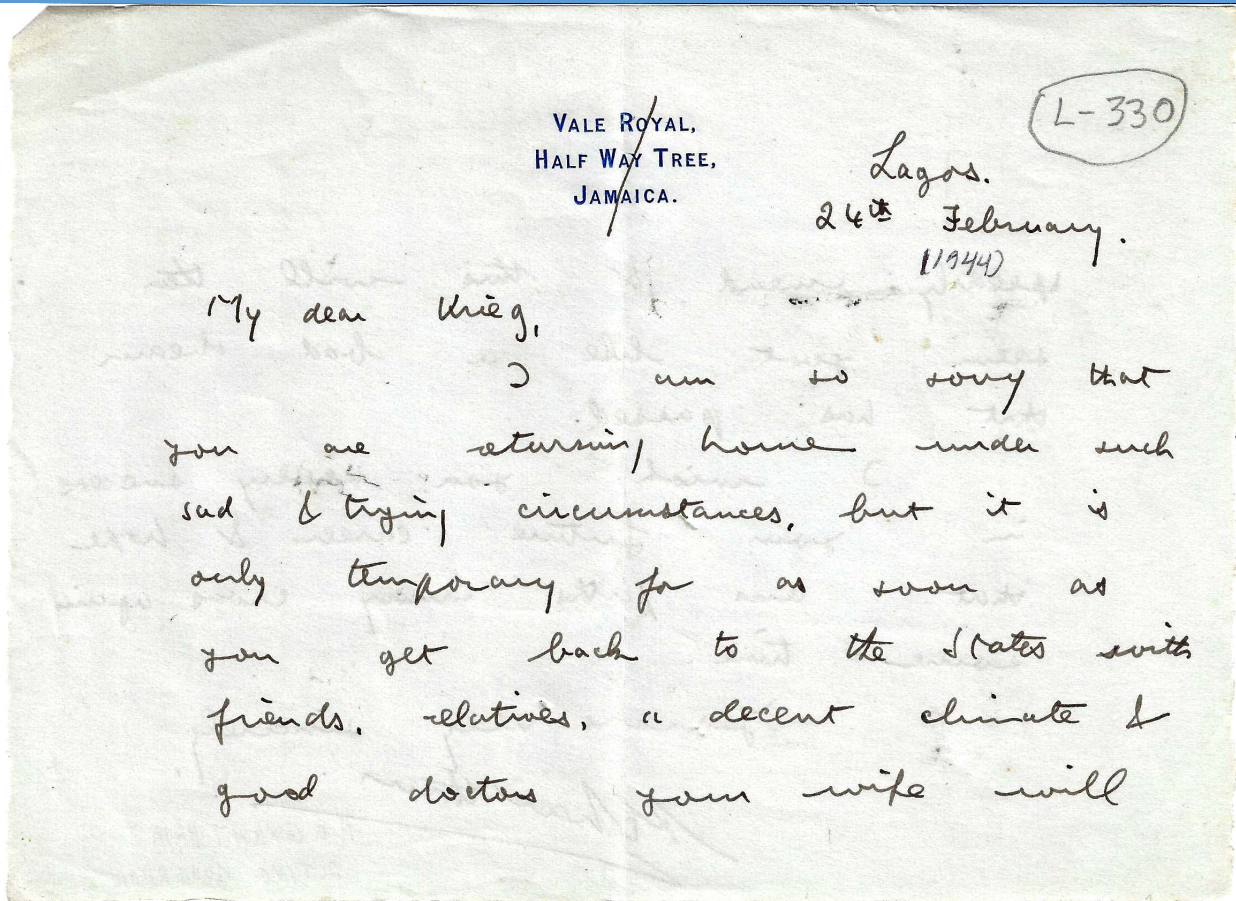 L-330
VALE ROYAL,
HALF WAY TREE,
JAMAICA.
Lagos.
24th February.
(1944)
My dear Krieg,
I am so sorry that
you are returning home under such
sad & trying circumstances, but it is
only temporary for as soon as
you get back to the States with
friends, relatives, a decent climate &
good doctors your wife will